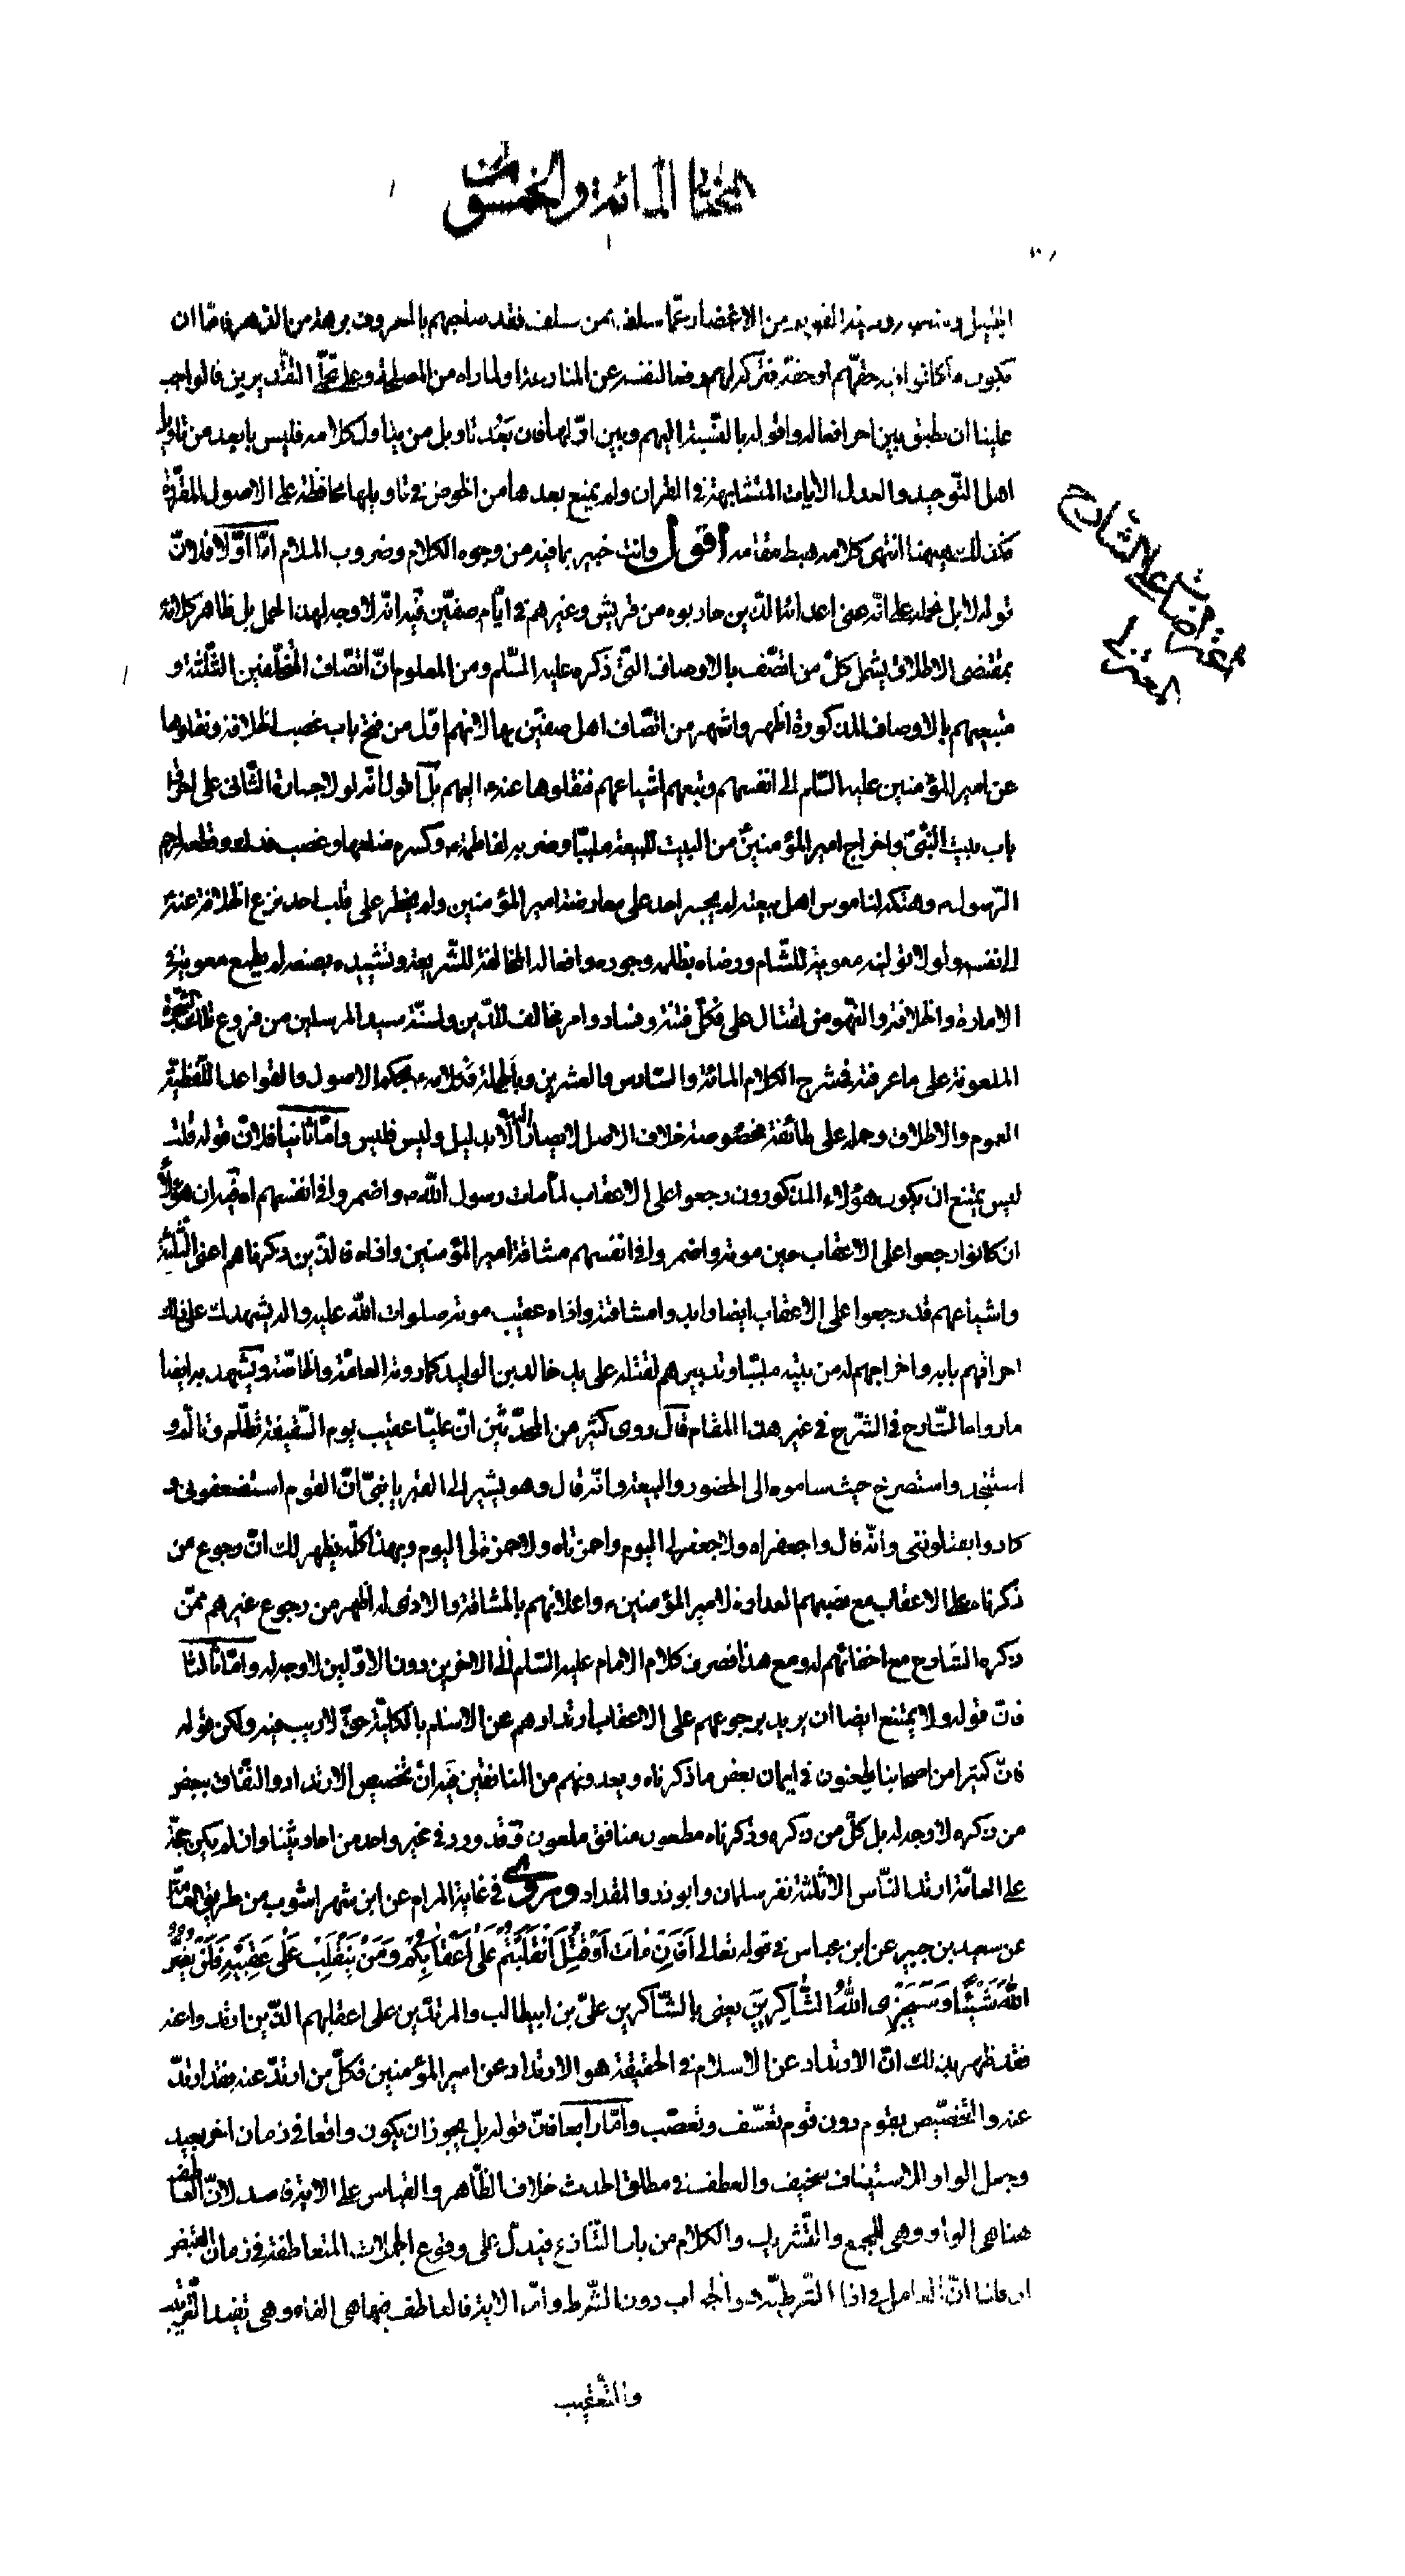 المختار المائة والخمسون
من الاغضاء عمّا سلف ممن سلف فقد صاحبهم بالمعروف برهة من الدهر فامّا ان
يكون ما كانوا فيه حقّهم او حقّه فتركه لهم رفعا لنفسه عن المنازعة او لما رآه من المصلحة وعلى كلا التقديرين فالواجب
علينا ان نطبق بين آخر افعاله واقواله بالنسبة اليهم وبين اوّلها فان بَعُد تاويل من يتاول كلامه فليس بابعد من تاويل
اهل التّوحيد والعدل الآيات المتشابهة في القران ولم يمنع بعدها من الخوض في تاويلها محافظة على الاصول المقرّرة
فكذلك ههنا انتهى كلامه هبط مقامه اقول وانت خبير بما فيه من وجوه الكلام وضروب الملام امّا اوّلا فلانّ
قوله لا بل نحمله على انّه عنى اعدائه الذين حاربوه من قريش وغيرهم في ايّام صفّين فيه انّه لا وجه لهذا الحمل بل ظاهر كلامه
بمقتضى الاطلاق يشمل كلّ من اتّصف بالاوصاف الّتي ذكره عليه السّلم ومن المعلوم انّ اتّصاف المتخلّفين الثلثة و
متبعيهم بالاوصاف المذكورة اظهر واشهر من اتّصاف اهل صفّين بها لانهم اوّل من فتح باب غصب الخلافة ونقلوها
عن امير المؤمنين عليه السّلم الى انفسهم وتبعهم اشياعهم فنقلوها عنه الیهم بل اقول انّه لولا جسارة الثّاني على احراق
باب بيت النّبيّ واخراج امير المؤمنين من البيت للبيعة ملبّبا وضربه لفاطمة وكسره ضلعها وغصب فدك وقطعه لرحم
الرّسول وهتكه لناموس اهل بيته لم يجسر احد على معارضة امير المؤمنين ولم يخطر على قلب احد نزع الخلافة عنه
الى نفسه ولولا توليته معوية للشّام ورضاه بظلمه وجوره وافعاله المخالفة للشّريعة وتشييده بصنعه لم يطمع معوية في
الامارة والخلافة والنّهوض لقتال على فكلّ فتنة وفساد وامر مخالف للدّين ولسنّة سيد المرسلين من فروع تلك الشّجرة
الملعونة على ما عرفته في شرح الكلام المائة والسّادس والعشرين وبالجملة فكلامه بحكم الاصول والقواعد اللّفظيّة
العموم والاطلاق وحمله على طائفة مخصوصة خلاف الاصل لا يصار اليه الّا بدليل وليس فليس وامّا ثانيا فلانّ قوله قلت
ليس يمتنع ان يكون هؤلاء المذكورون رجعوا على الاعقاب لمّا مات رسول اللّه واضمروا في انفسهم اه فيه ان هؤلاء
ان كانوا رجعوا على الاعقاب حين موته واضمروا في انفسهم مشاقة امير المؤمنين واذاه فالّذين ذكرناهم اعنى الثلثة
واشياعهم قد رجعوا على الاعقاب ايضا وابدوا مشاقته واذاه عقيب موته صلوات اللّه عليه واله يشهد لك على ذلك
احراقهم بابه واخراجهم له من بيته ملبّبا وتدبيرهم لقتله على يد خالد بن الوليد كما روته العامّة والخاصّة ويشهد به ايضا
ما رواه الشّارح في الشّرح في غير هذا المقام قال روى كثير من المحدّثين انّ عليّا عقيب يوم السّقيفة تظلّم وتالّم و
استنجد واستصرخ حيث ساموه الى الحضور والبيعة وانّه قال وهو يشير الى القبر يا بنيّ انّ القوم استضعفوني و
كادوا يقتلونني وانّه قال واجعفراه ولا جعفر لي اليوم واحمزتاه ولا حمزة لى اليوم وبهذا كلّه يظهر لك انّ رجوع من
ذكرناه على الاعقاب مع نصبهم العداوة لامير المؤمنين واعلانهم بالمشاقة والاذى له اظهر من رجوع غيرهم ممّن
ذكره الشّارح مع اخفائهم له ومع هذا فصرف كلام الامام عليه السّلم الى الاخرين دون الاوّلين لا وجه له وامّا ثالثا
فانّ قوله ولا يمتنع ايضا ان يريد برجوعهم على الاعقاب ارتدادهم عن الاسلام بالكلّية حقّ لا ريب فيه ولكن قوله
فانّ كثيرا من اصحابنا يطعنون في ايمان بعض ما ذكرناه ويعدونهم من المنافقين فيه انّ تخصيص الارتداد والنّفاق ببعض
من ذكره لا وجه له بل كلّ من ذكره وذكرناه مطعون منافق ملعون وقد ورد في غير واحد من احاديثنا وان لم يكن حجّة
على العامّة ارتد النّاس الا ثلثة نفر سلمان وابوذر والمقداد وروى في غاية المرام عن ابن شهر اشوب من طريق العامّة
عن سعيد بن جبير عن ابن عباس في قوله تعالى اَفَاِنْ مٰاتَ اَوْ قُتِلَ انْقَلَبْتُمْ عَلٰى اَعْقٰابِكُمْ وَمَنْ يَنْقَلِبْ عَلٰى عَقِبَيْهِ فَلَنْ يَضُرَّ
اللّٰهَ شَيْئًا وَسَيَجْزِى اللّٰهُ الشّٰاكِرِينَ يعنى بالشّاكرين علىّ بن ابيطالب والمرتدّين على اعقابهم الّذين ارتدوا عنه
فقد ظهر بذلك انّ الارتداد عن الاسلام في الحقيقة هو الارتداد عن امير المؤمنين فكلّ من ارتدّ عنه فقد ارتدّ
عنه والتّخصيص بقوم دون قوم تعسّف وتعصّب وامّا رابعا فانّ قوله بل يجوز ان يكون واقعا في زمان اخر بعيد
وجعل الواو للاستيناف سخيف والعطف في مطلق الحدث خلاف الظّاهر والقياس على الاية فاسد لانّ العاطف
هنا هي الواو وهي للجمع والتّشريك والكلام من باب التّنازع فيدلّ على وقوع الجملات المتعاطفة في زمان القبض
ان قلنا انّ العامل في اذا الشّرطيّة هو الجواب دون الشّرط وامّا الاية فالعاطف فيها هي الفاء وهي تفيد التّرتيب
والتّعقيب
اعتراضات على الشّارح
المعتزلي